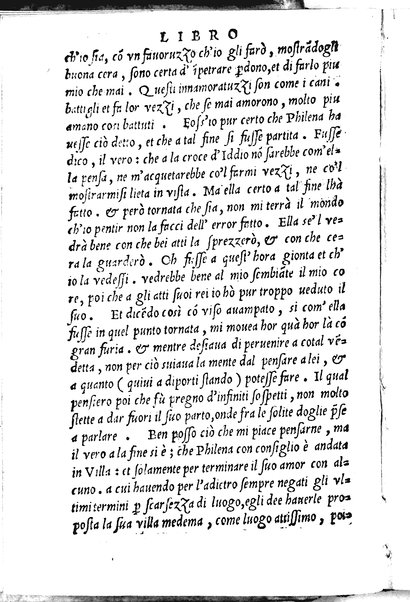 LIBRO
ch'io sia, cō vn fauoruzzo ch'io gli farò, mostrādogli
buona cera, sono certa d'īpetrare p̄dono, et di farlo piu
mio che mai. Questi innamoratuzzi son come i cani.
battigli et fa lor vezzi, che se mai amorono, molto piu
amano cosi battuti. Foss'io pur certo che Philena ha
uesse ciò detto, et che a tal fine si fusse partita. Fusse
dico, il vero: che a la croce d'Iddio nō sarebbe com'el-
la pensa, ne m'acquetarebbe co'l farmi vezzi, ne co'l
mostrarmisi lieta in vista. Ma ella certo a tal fine lhà
fatto. & però tornata che sia, non mi terrà il mōndo
ch'io pentir non la facci dell'error fatto. Ella se'l ve-
drà bene con che bei atti la sprezzerò, & con che ce-
ra la guarderò. Oh fusse a quest'hora gionta et ch'
io la vedessi. vedrebbe bene al mio sembiāte il mio co
re, poi che a gli atti suoi rei io hò pur troppo ueduto il
suo. Et dicēdo così cō viso auampato, si com'ella
fusse in quel punto tornata, mi mouea hor quà hor là cō
gran furia. & mentre desiaua di peruenire a cotal vē-
detta, non per ciò suiaua la mente dal pensare a lei, &
a quanto (quiui a diporti stando) potesse fare. Il qual
pensiero poi che fù pregno d'infiniti sospetti, non molto
stette a dar fuori il suo parto, onde fra le solite doglie p̄se
a parlare. Ben posso ciò che mi piace pensarne, ma
il vero a la fine si è; che Philena con consiglio è andata
in Villa: et solamente per terminare il suo amor con al-
cuno. a cui hauendo per l'adietro sempre negati gli vl-
timi termini p̄ scarsezza di luogo, egli dee hauerle pro-
posta la sua villa medema, come luogo attissimo, poi-